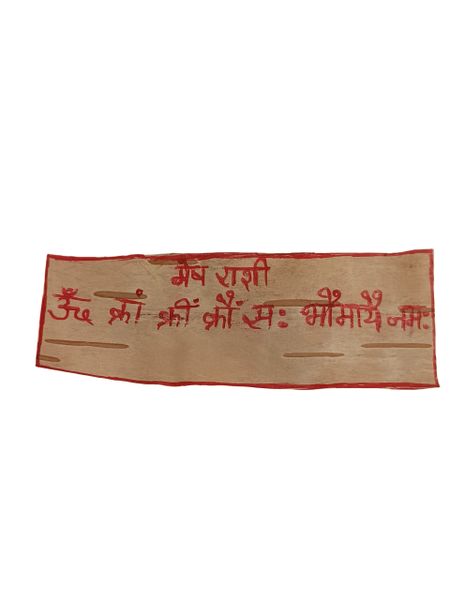 मेष राशी
ॐ क्रां क्रीं क्रौं सः भौमायै नमः